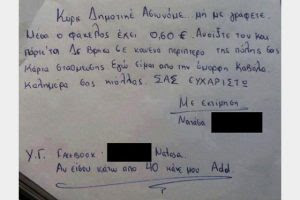 Κύριε Δημοτικέ Αστυνόμε. μή με γράφετε.
Μέσα ο φάκελος έχει 0,60 €. Ανοίξτε τον και
πάρτε τα. Δε βρήκα σε κανένα περίπτερο της πόλης σας
κάρτα στάθμευσης. Εγώ είμαι από την όμορφη Καβάλα.
Καλημέρα σας πιόλας. ΣΑΣ ΕΥΧΑΡΙΣΤΩ
Με εκτίμηση
Νατάσα
Υ.Γ. Facebook: Natasa
Αν είσαι κάτω από 40 κάνε μου Add.